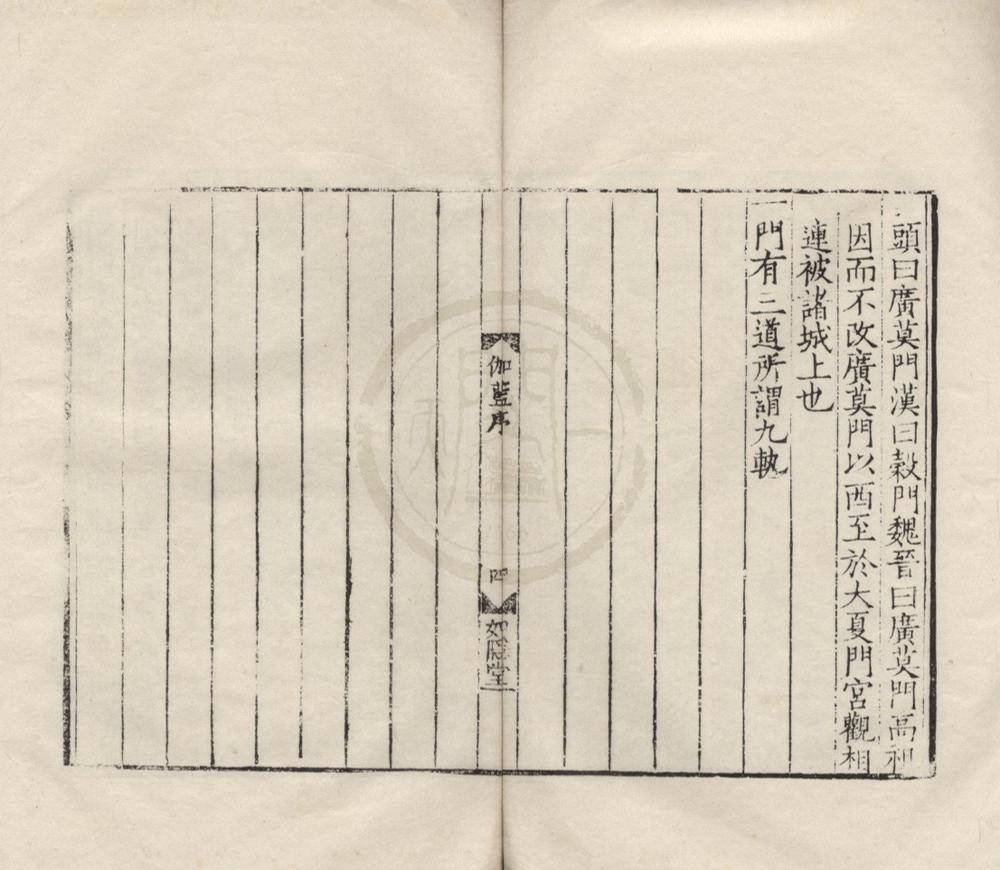 頭曰廣莫門漢曰穀門魏晉曰廣莫門高祖
因而不改廣莫門以西至於大夏門宮觀相
連被諸城上也
一門有三道所謂九軌
伽藍序
四
如隱堂